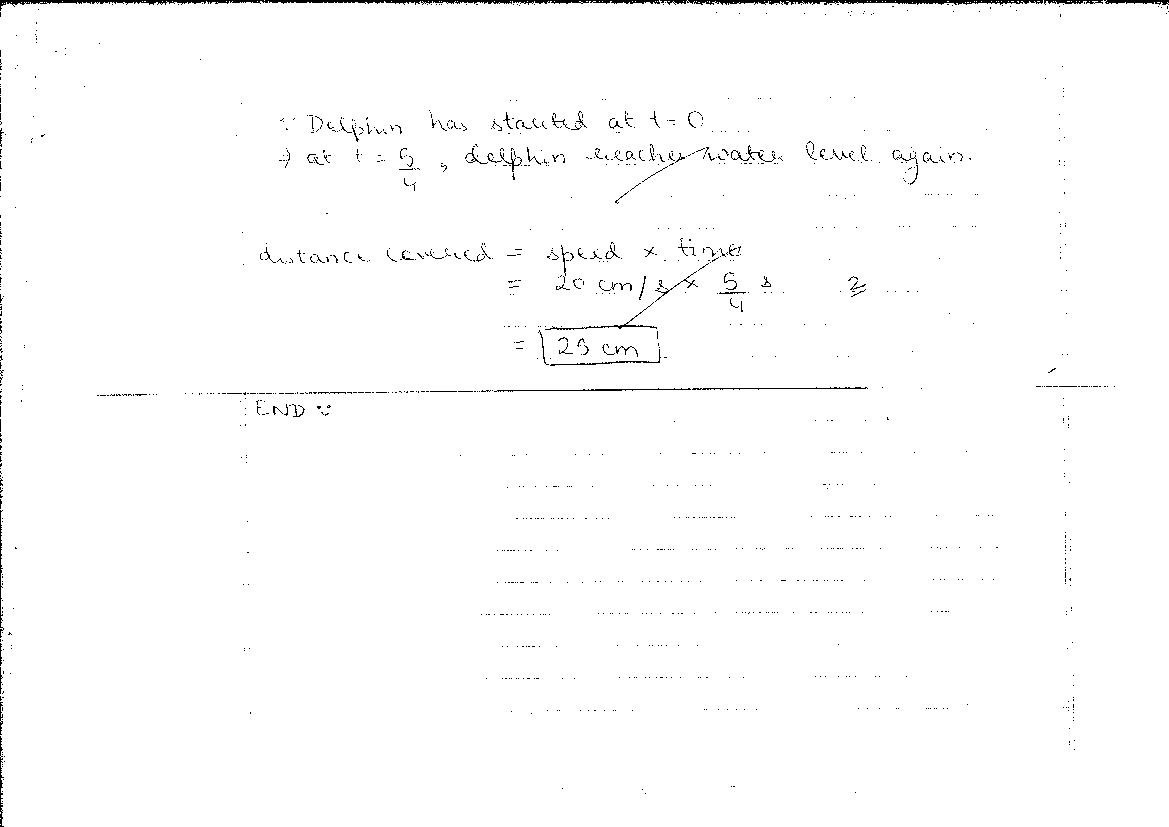 ∵ Dolphin has started at t = 0
⇒ at t = 5/4, dolphin reaches water level again.
distance covered = speed × time
= 20 cm/s × 5/4 s 2
= 25 cm
END